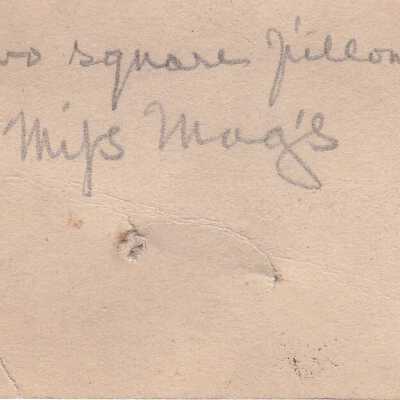 wo square pillow
Miss Mag's